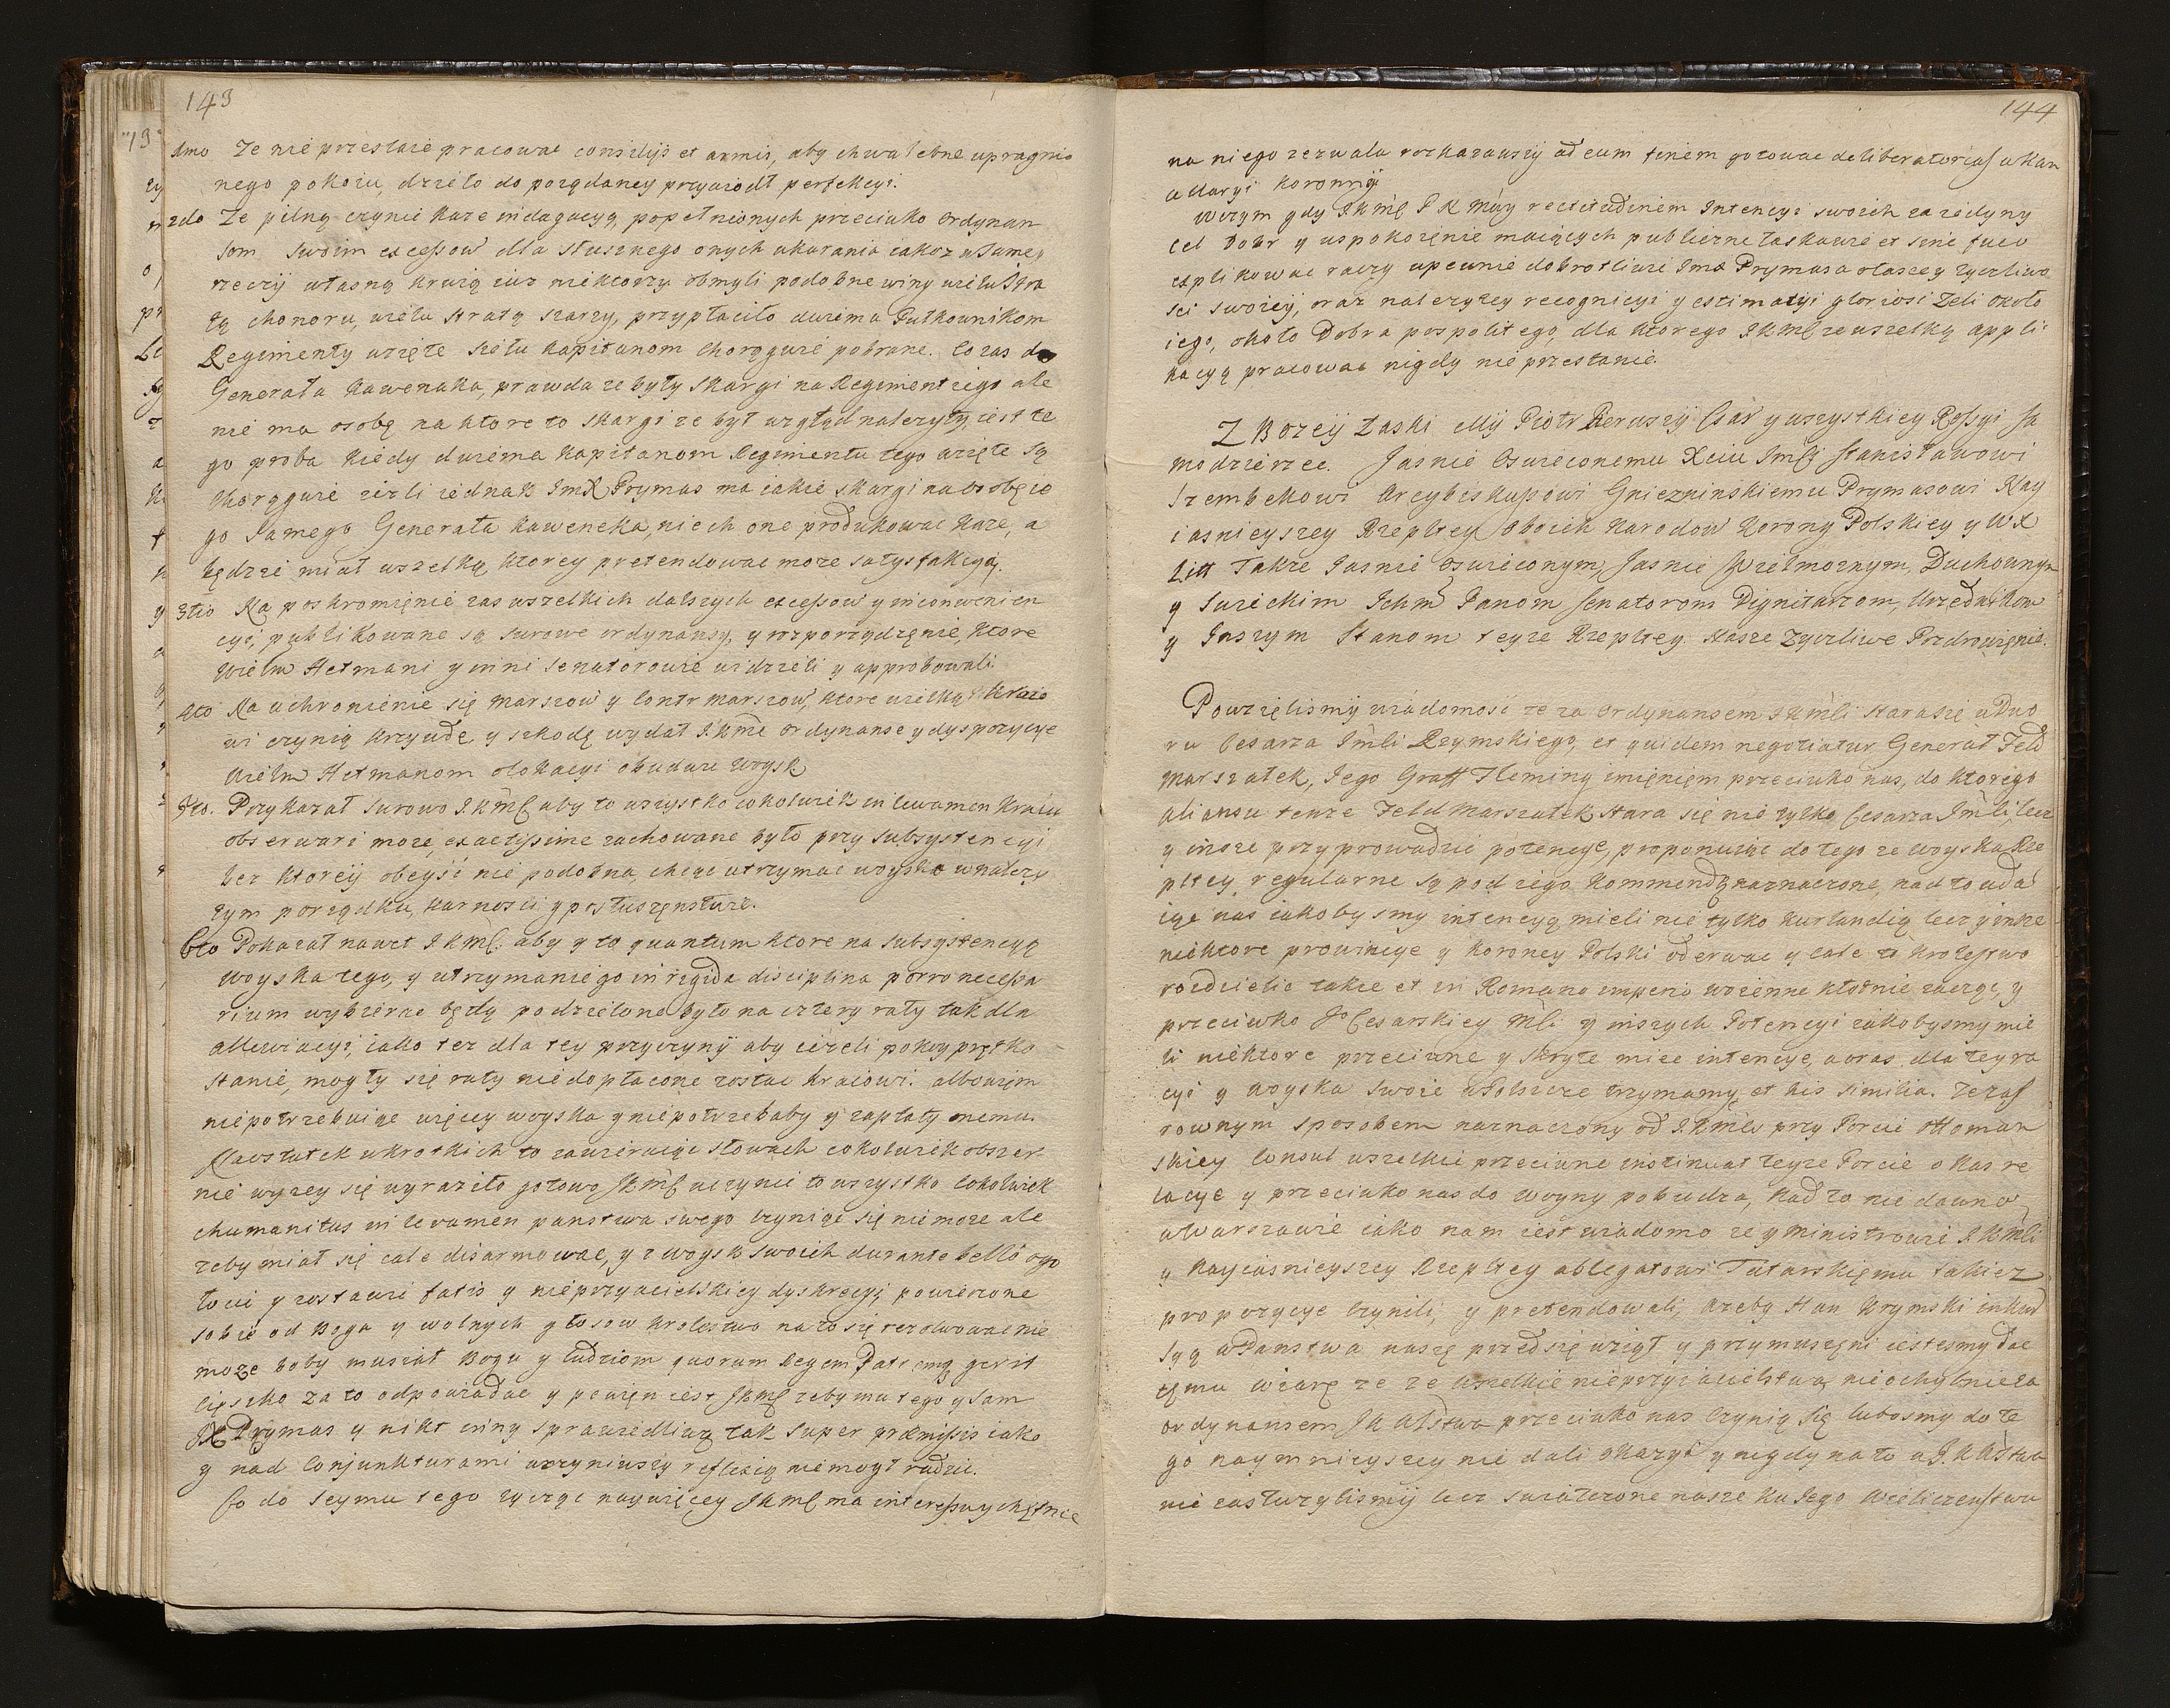 143
1mo Ze nie przestaie pracowac consilijs et armis, aby chwalebne upragnio
nego pokoiu, dzieło do poządaney przywiodł perfekcyi.
2do Ze pilną czynic kaze indagacyą, popełnionych przeciwko ordynan
som swoim excessow dla słusznego onych ukarania iakoz w samey
rzeczij własną krwią iuz niektorzy obmyli podobne winy wielu stra
tą chonoru, wielu stratą szarzy, przypłaciło dwiema Pułkownikom
Regimenty wzięte sześlu Kapitanom Chorągwie pobrane. Co zas do
Generała Kawenaka, prawda ze były skargi na Regiment iego ale
nie na osobę na ktore to skargi ze był wzgląd nalezyty, iest te
go proba kiedy dwiema Kapitanom Regimentu tego wzięte są
Chorągwie iezli iednak ImX Prymas ma iakie skargi na osobę ie
go samego Generała Kaweneka, niech one produkowac kaze, a
będzie miał wszelką, ktorey pretendowac moze satysfakcyą.
3tio Na poskromięnie zas wszelkich dalszych excessow y inconwenien
cyi, publikowane są surowe ordynansy, y rozporządzęnie, ktore
Wielm Hetmani y inni senatorowie widzieli y approbowali.
4to Na uchronienie się marszow y Contr marszow, ktore wielką kraio
wi czynią krzywdę y szkodę wydał J.Kmc ordynanse y dyspozycye
Wielm Hetmanom o lokacyi obudwu woysk
5to. Przykazał surowo J.Kmc aby to wszystko cokolwiek in levamen kraiu
observari moze, exactissime zachowane było przy subsystencyi
bez ktoreij obeyść nie podobna, chcąc utrzymac woysko w nalezy
tym porządku, karnosci y posłuszęnstwie.
6to Pokazał nawet J KMc aby y to quantum ktore na subsystencyą
woyska tego, y utrzymanie go in rigida disciplina porro necessa
rium wybierac będą podzielone było na cztery raty tak dla
allewiacyi, iako tez dla tey przyczynij aby iezeli pokoy prętko
stanie, mogły się raty niedopłacone zostac kraiowi. albowiem
niepotrzebuiąc więcey woyska y niepotrzebaby y zapłaty onemu.
Naostatek w krotkich to zawieraiąc słowach cokolwiek obszer-
nie wyzey się wyraziło gotowo Jkmc uczynic to wszystko cokolwiek
chumanitus in levamen panstwa swego czyniąc się nie moze ale
zeby miał się cale disarmowac, y z woysk swoich durante bello ogo
łocic y zostawic fatis y nieprzyiacielskiey dyskrecyi powierzone
sobie od Boga y wolnych głosow krolestwo na to się rezolwowac nie
moze boby musiał Bogu y ludziom quorum Regem Patremq gerit
cięszko za to odpowiadac y pewięn iest Jkmc zeby mu tego y sam
JX Prymas y nikt inny sprawiedliwą tak super præmissis iako
y nad Conjunkturami uczyniwszy reflexią nie mogł radzic.
Co do seymu tego zycząc naywięcey Jkmc ma interessu y chętnie
144
na niego zezwala rozkazawszij ad eum finem gotowac deliberatorias w Kan
cellaryi Koronnij
W czym gdy JKmc P N Mciwy rectitudinem intencyi swoich za iedyny
cel Dobr y uspokoięnie maiących publiczne łaskawie et sine fuco
explikowac raczy upewnia dobrotliwie ImX Prymasa o łaszcey zyczliwo
sci swoieij, oraz nalezytey recognicyi y estimacyi gloriosi zeli około
iego, około Dobra pospolitego, dla ktorego Jkmc ze wszelką appli
kacyą pracowac nigdy nie przestanie.
Z Bozey Łaski Mij Piotr Pierwszij Csar y wszystkiey Rossyi Sa
modzierzce. Jasnie Oswieconemu Xciu Jmci Stanisławowi
Szembekowi Arcybiskupowi Gnieznińskiemu Prymasowi Nay
iasnieyszey Rzepltey Oboich Narodow Korony Polskiey y WX
Litt Takze Jasnie Oswieconym, Jasnie Wielmoznym, Duchownym
y Swieckim Ichm Panom Senatorom Dignitarzom, Urzędnikom
y Inszym Stanom teyze Rzepltey. Nasze Zyczliwe Pozdrowięnie.
Powzięlismij wiadomosc ze za ordynansem J.Kmci stara się u Dwo
ru Cesarza Jmci Rzymskiego, et quidem negotiatur Generał Feld
marszałek, Jego Graff Fleming imięnięm przeciwko nas, do ktorego
aliansu tenze Feld Marszałek stara się nie tylko Cesarza Jmci lecz
y insze przyprowadzic potencye, proponuiąc do tego ze woyska Rze
pltey regularne są pod iego kommendę naznaczone, nad to uda
iąc nas iakobysmy intencyą mieli nie tylko Kurlandią lecz y insze
niektore prowincye y Koroney Polski oderwac y całe to krolestwo
rozdzielic takze et in Romano imperio woienne kłotnie zacząc, y
przeciwko Jo Cesarskiey Mci y inszych Potencyi iakobysmy mie
li niektore przeciwne y skryte miec intencye, a oraz dla tey ra
cyi y woyska swoie w Polszcze trzymamy, et his similia. Ze zas
rownym sposobem naznaczony od J.Kmci przy Porcie Ottoman
skiey Consul wszelkie przeciwne instinuat teyze Porcie o nas re
lacye y przeciwko nas do woyny pobudza, Nad to nie dawno
w Warszawie iako nam iest wiadomo ze y ministrowie J Kmci
y Nayiasnieyszey Rzepltey ablegatowi Tatarskięmu takiez
propozycye czynili, y pretendowali, azeby Han Krymski inkur
syą w Panstwa naszę przedsię wziął y przymuszęni iestesmy dac
tęmu wiarę ze ze wszelkie nieprzyiacielstwa nieochybnie za
ordynansem JK Mstwa przeciwko nas czynią się lubosmy do te
go naymnieyszey nie dali okazyi y nigdy na to u J.K Mstwa
nie zasłuzylismij lecz swiatczone nasze ku Jego Wieliczenstwu